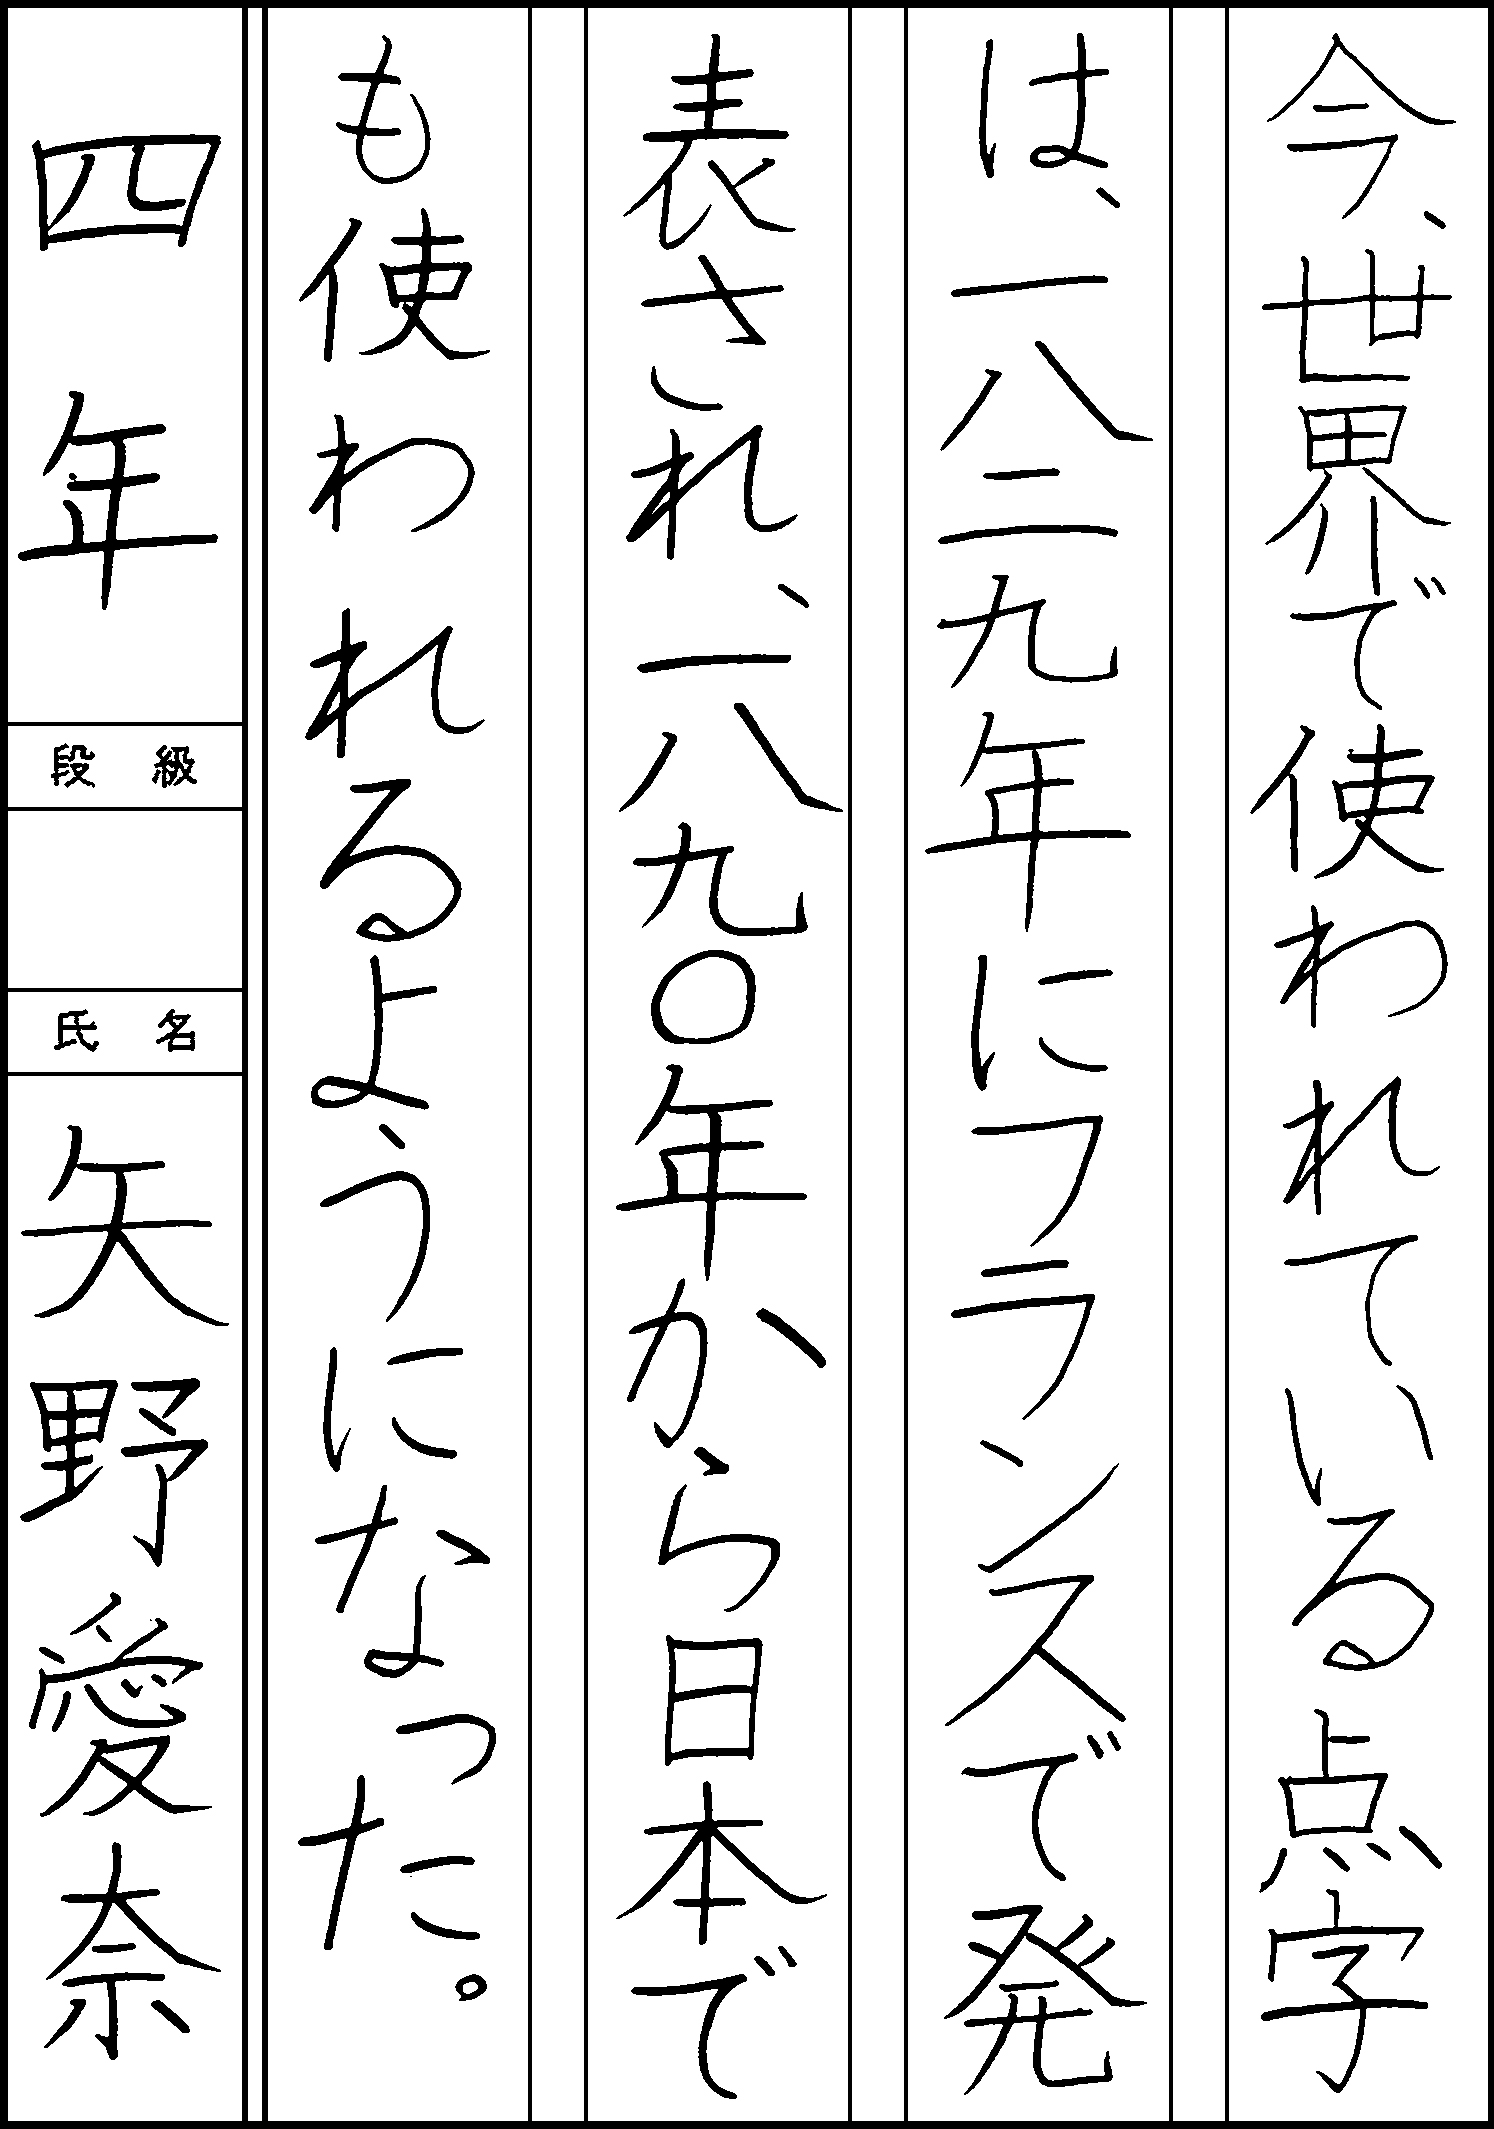 今、世界で使われている点字
は、一八二九年にフランスで発
表され、一八九〇年から日本で
も使われるようになった。
四年
段級
氏名
矢野愛奈